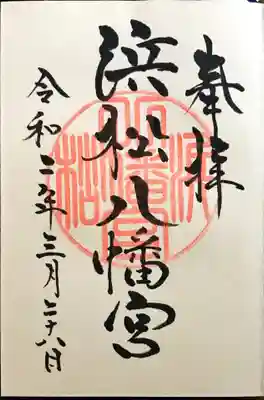 奉拝
浜松八幡宮
令和二年三月二十八日